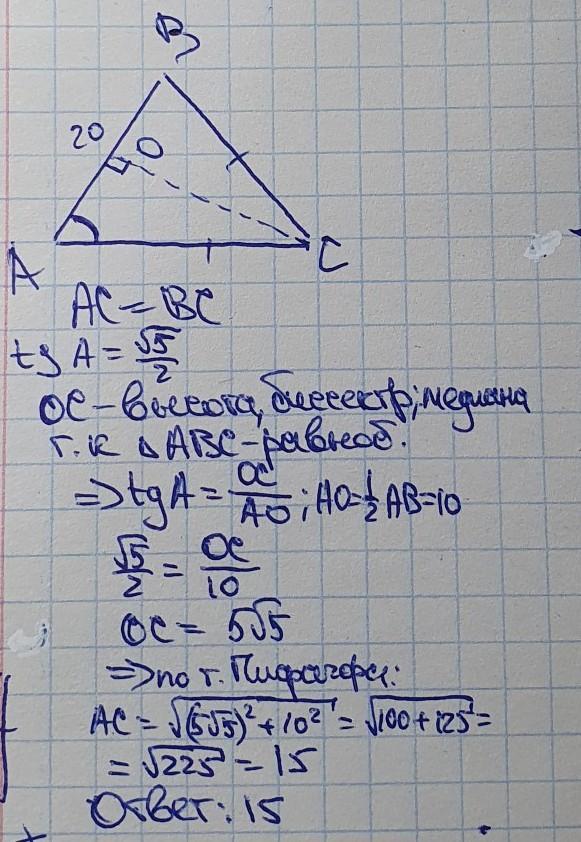 B
20
O
A
C
AC = BC
tg A = √5/2
OC – высота, биссектр; медиана
т.к △ABC – равноб.
=> tg A = OC/AO ; AO = 1/2 AB = 10
√5/2 = OC/10
OC = 5√5
=> по т. Пифагора:
AC = √((5√5)² + 10²) = √(100 + 125) =
= √225 = 15
Ответ: 15